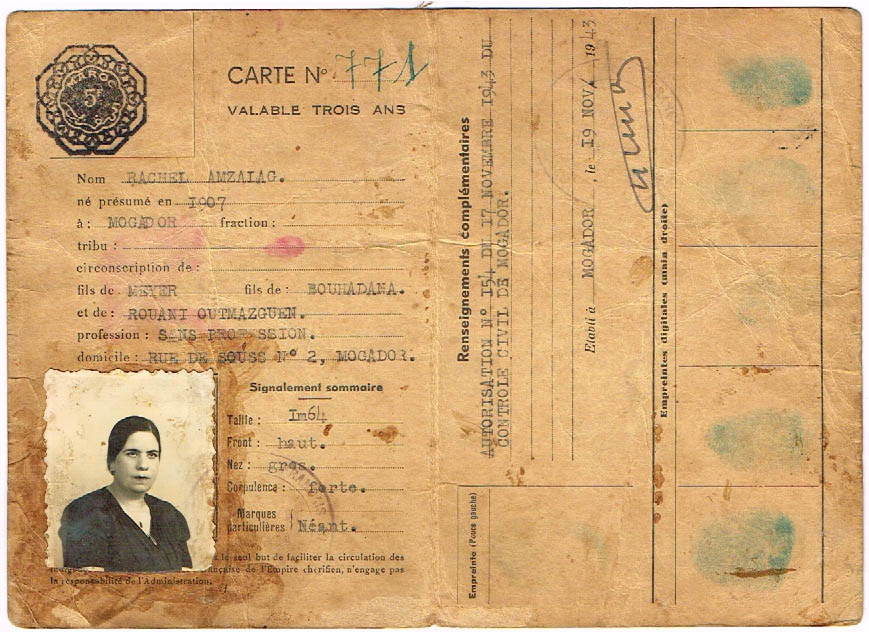 MAROC
5
CARTE N° 771
VALABLE TROIS ANS
Nom RACHEL AMZALAG.
né présumé en 1907
à : MOGADOR fraction :
tribu :
circonscription de :
fils de MEYER fils de : BOUHADANA.
et de : ROUANI OUTMAZGUEN.
profession : SANS PROFESSION.
domicile : RUE DE SOUSS N° 2, MOGADOR.
Signalement sommaire
Taille : Im64
Front : haut.
Nez : gros.
Corpulence : forte.
Marques
particulières Néant.
le seul but de faciliter la circulation des
de l'Empire chérifien, n'engage pas
la responsabilité de l'Administration.
Renseignements complémentaires
AUTORISATION N° 154 DU 17 NOVEMBRE 1943 DU
CONTROLE CIVIL DE MOGADOR.
Etabli à MOGADOR, le 19 NOV. 1943
Empreintes digitales (main droite)
Empreinte (Pouce gauche)